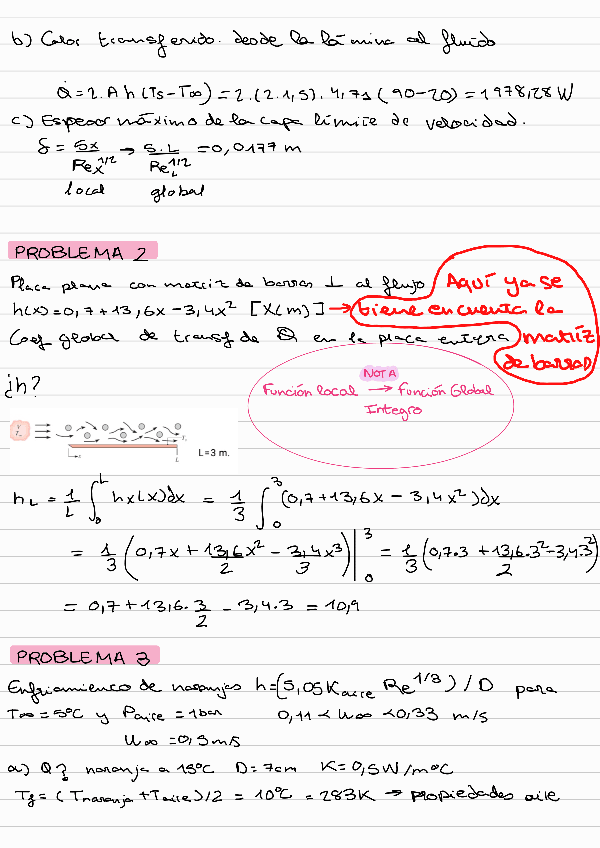 b) Calor transferido desde la lámina al fluido
Q̇ = 2·A h (Ts-T∞) = 2·(2·1,5)·4,71 (90-20) = 1978,28 W
c) Espesor máximo de la capa límite de velocidad.
δ = 5x/Reₓ^1/2 → 5·L/Re_L^1/2 = 0,0177 m
local global
PROBLEMA 2
Placa plana con matriz de barras ⊥ al flujo
h(x) = 0,7 + 13,6x - 3,4x² [X(m)] →
Coef global de transf de Q en la placa entera
Aquí ya se
tiene en cuenta la
matriz
de barras
¿h?
NOTA
Función local → Función Global
Integro
L=3 m.
h_L = 1/L ∫₀^L hx(x)dx = 1/3 ∫₀³ (0,7+13,6x - 3,4x²)dx
= 1/3 (0,7x + 13,6x²/2 - 3,4x³/3)|₀³ = 1/3 (0,7·3 + 13,6·3²/2 - 3,4·3²)
= 0,7 + 13,6·3/2 - 3,4·3 = 10,9
PROBLEMA 3
Enfriamiento de naranjas h = (5,05 Kaire Re^1/3) / D para
T∞ = 5ºC y Paire = 1bar 0,11 < u∞ < 0,33 m/s
u∞ = 0,3 m/s
a) Q? naranja a 15ºC D = 7cm K = 0,5 W/mºC
Tf = (Tnaranja + Taire)/2 = 10ºC = 283K → propiedades aire